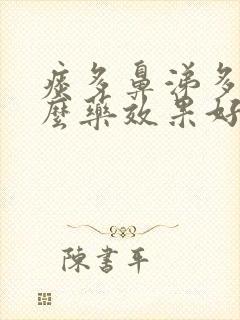 痰多鼻涕多
麼藥效果好
陳書平